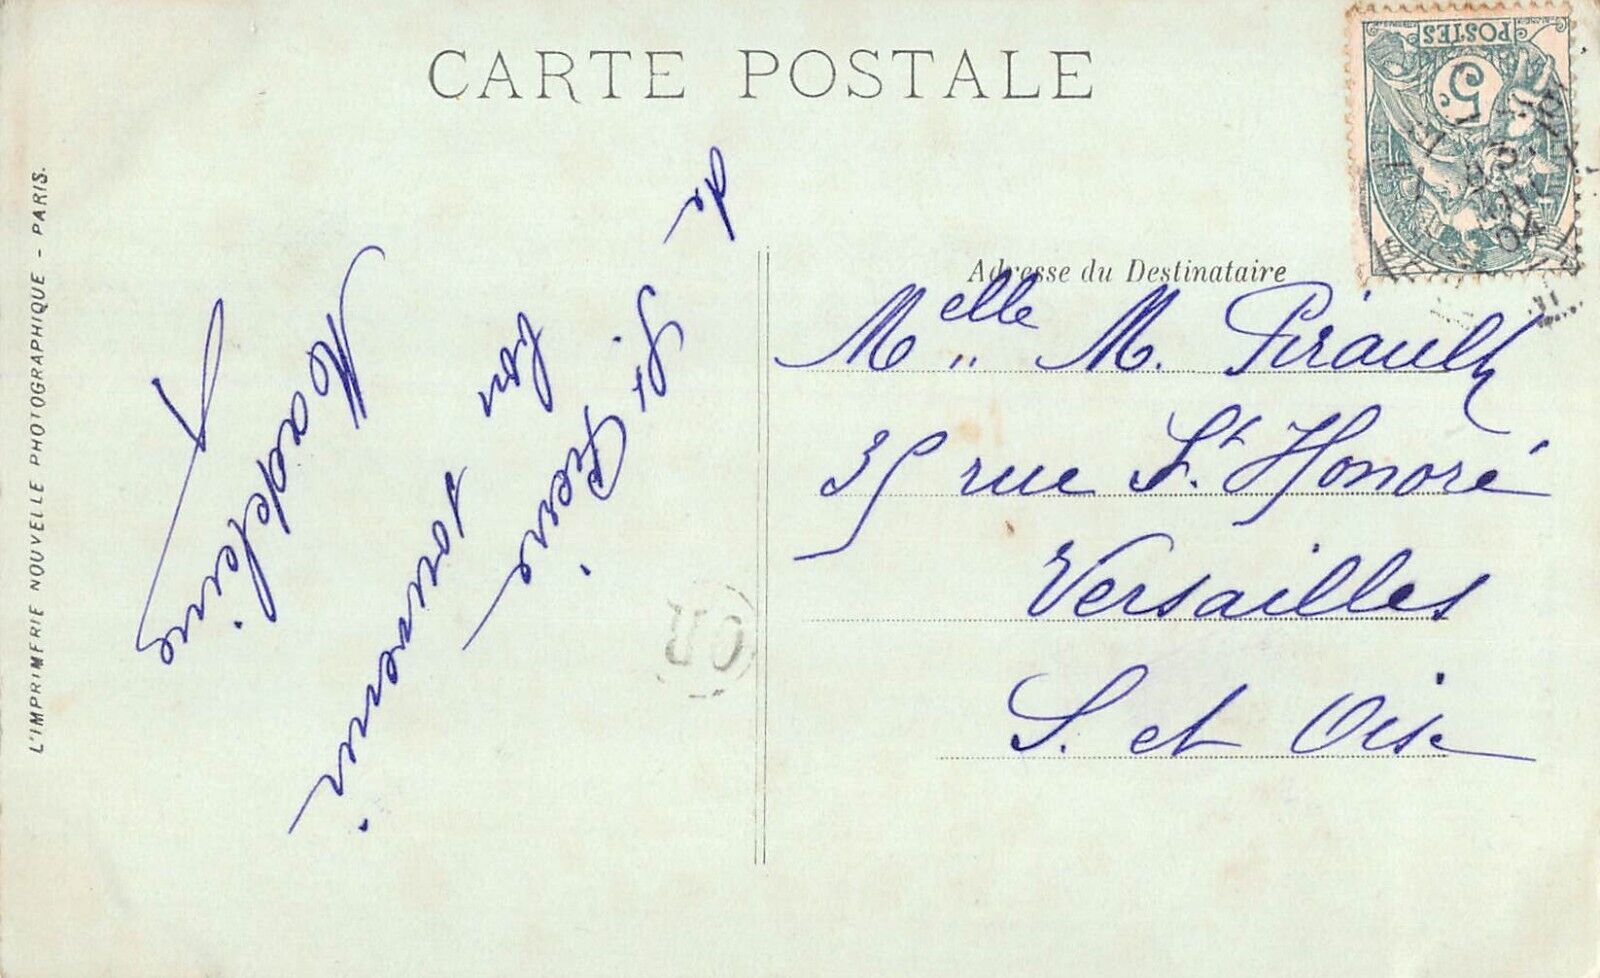 CARTE POSTALE
POSTES
5c
04
Adresse du Destinataire
Melle M. Pirault
35 rue St. Honoré
Versailles
S. et Oise
bon souvenir
de
St Pierre
Madeleine
OR
L'IMPRIMERIE NOUVELLE PHOTOGRAPHIQUE - PARIS.